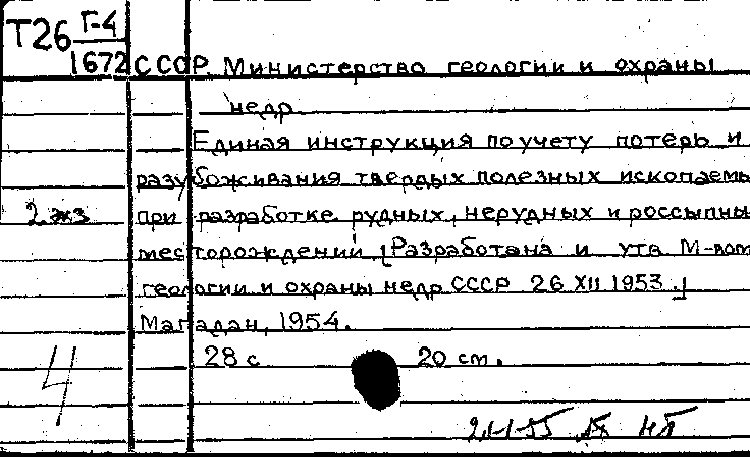 Т26 Г-4
1672 СССР. Министерство геологии и охраны
недр
Единая инструкция по учету потерь и
разубоживания твердых полезных ископаемы
2 экз при разработке рудных, нерудных и россыпны
месторождений [Разработана и утв М-вом
геологии и охраны недр СССР 26 XII 1953.]
Магадан, 1954.
28 с 20 см.
4